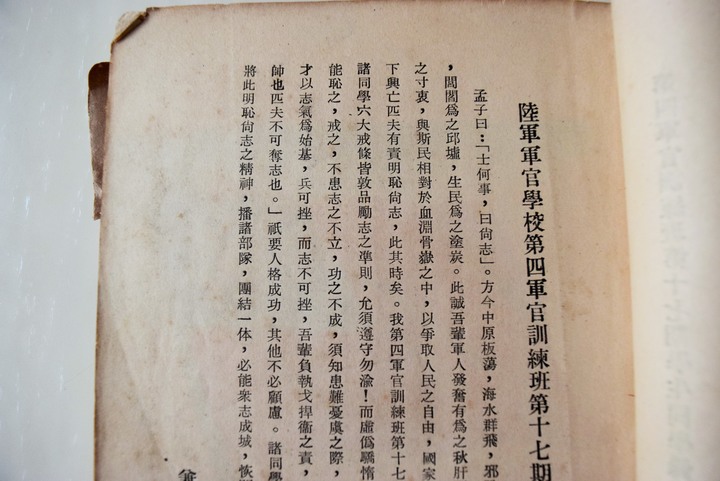 陸軍軍官學校第四軍官訓練班第十七期
孟子曰：「士何事，曰尙志」。方今中原板蕩，海水群飛，邪
，閭閻爲之邱墟，生民爲之塗炭。此誠吾輩軍人發奮有爲之秋肝
之寸衷，與斯民相對於血淵骨嶽之中，以爭取人民之自由，國家
下興亡匹夫有責明恥尙志，此其時矣。我第四軍官訓練班第十七
諸同學六大戒條皆敦品勵志之準則，允須遵守勿渝！而虛僞驕惰
能恥之，戒之，不患志之不立，功之不成，須知患難憂虞之際，
才以志氣爲始基，兵可挫，而志不可挫，吾輩負執戈捍衞之責，
帥也匹夫不可奪志也。」祇要人格成功，其他不必顧慮。諸同學
將此明恥尙志之精神，播諸部隊，團結一体，必能衆志成城，恢